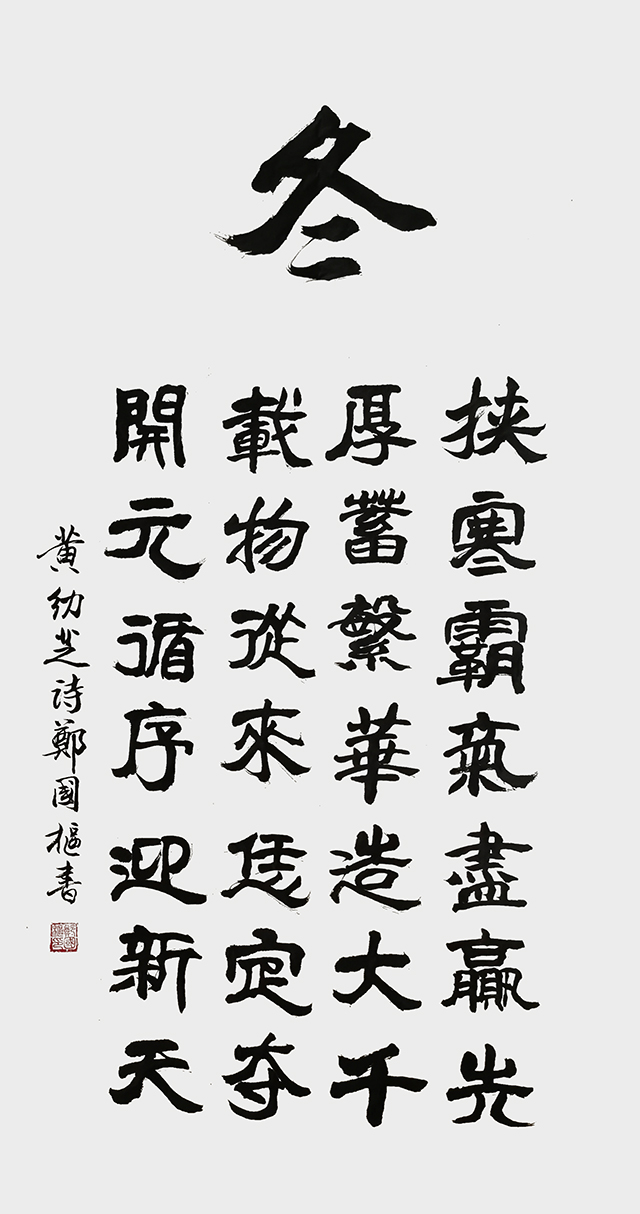 冬
挾寒霸氣盡贏先
厚蓄繁華造大千
載物從來恁定夺
開元循序迎新天
黄幼芝诗鄭國樞書